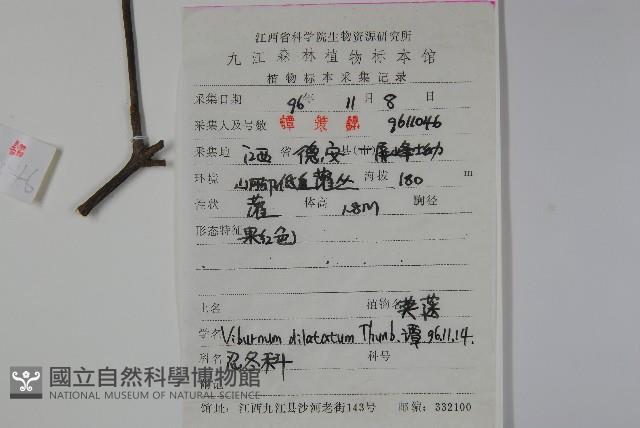 江西省科学院生物资源研究所
九江森林植物标本馆
植物标本采集记录
采集日期 96年 11月 8日
采集人及号数 譚策銘 9611046
采集地 江西 省 德安 县(市)
环境 灌丛 海拔 180 m
性状 灌 体高 1.8m 胸径
形态特征 果红色
土名 植物名 荚蒾
学名 Viburnum dilatatum Thunb. 譚 96.11.14.
科名 忍冬科 科号
附记
國立自然科學博物館
NATIONAL MUSEUM OF NATURAL SCIENCE
馆址：江西九江县沙河老街143号 邮编：332100